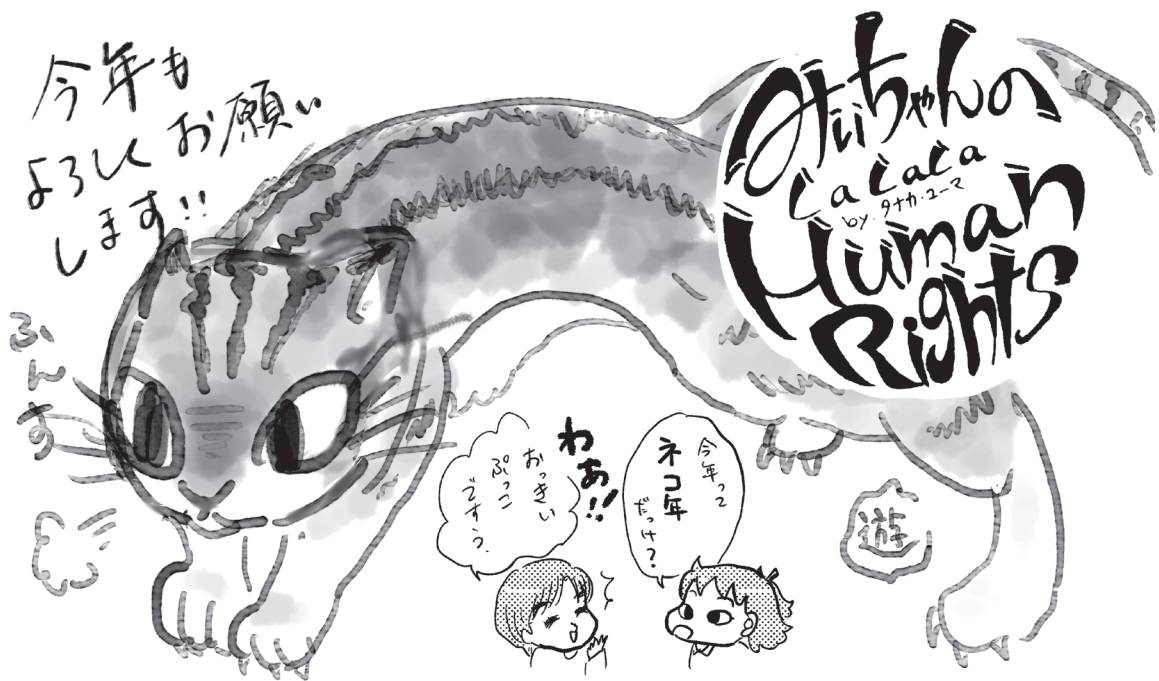 今年も
よろしくお願い
します!!
みぃちゃんの
LaLaLa
by.タナカ.ユーマ
Human
Rights
ふんす
今年って
ネコ年
だっけ？
わあ!!
おっきい
ぷっこ
ですぅ.
遊